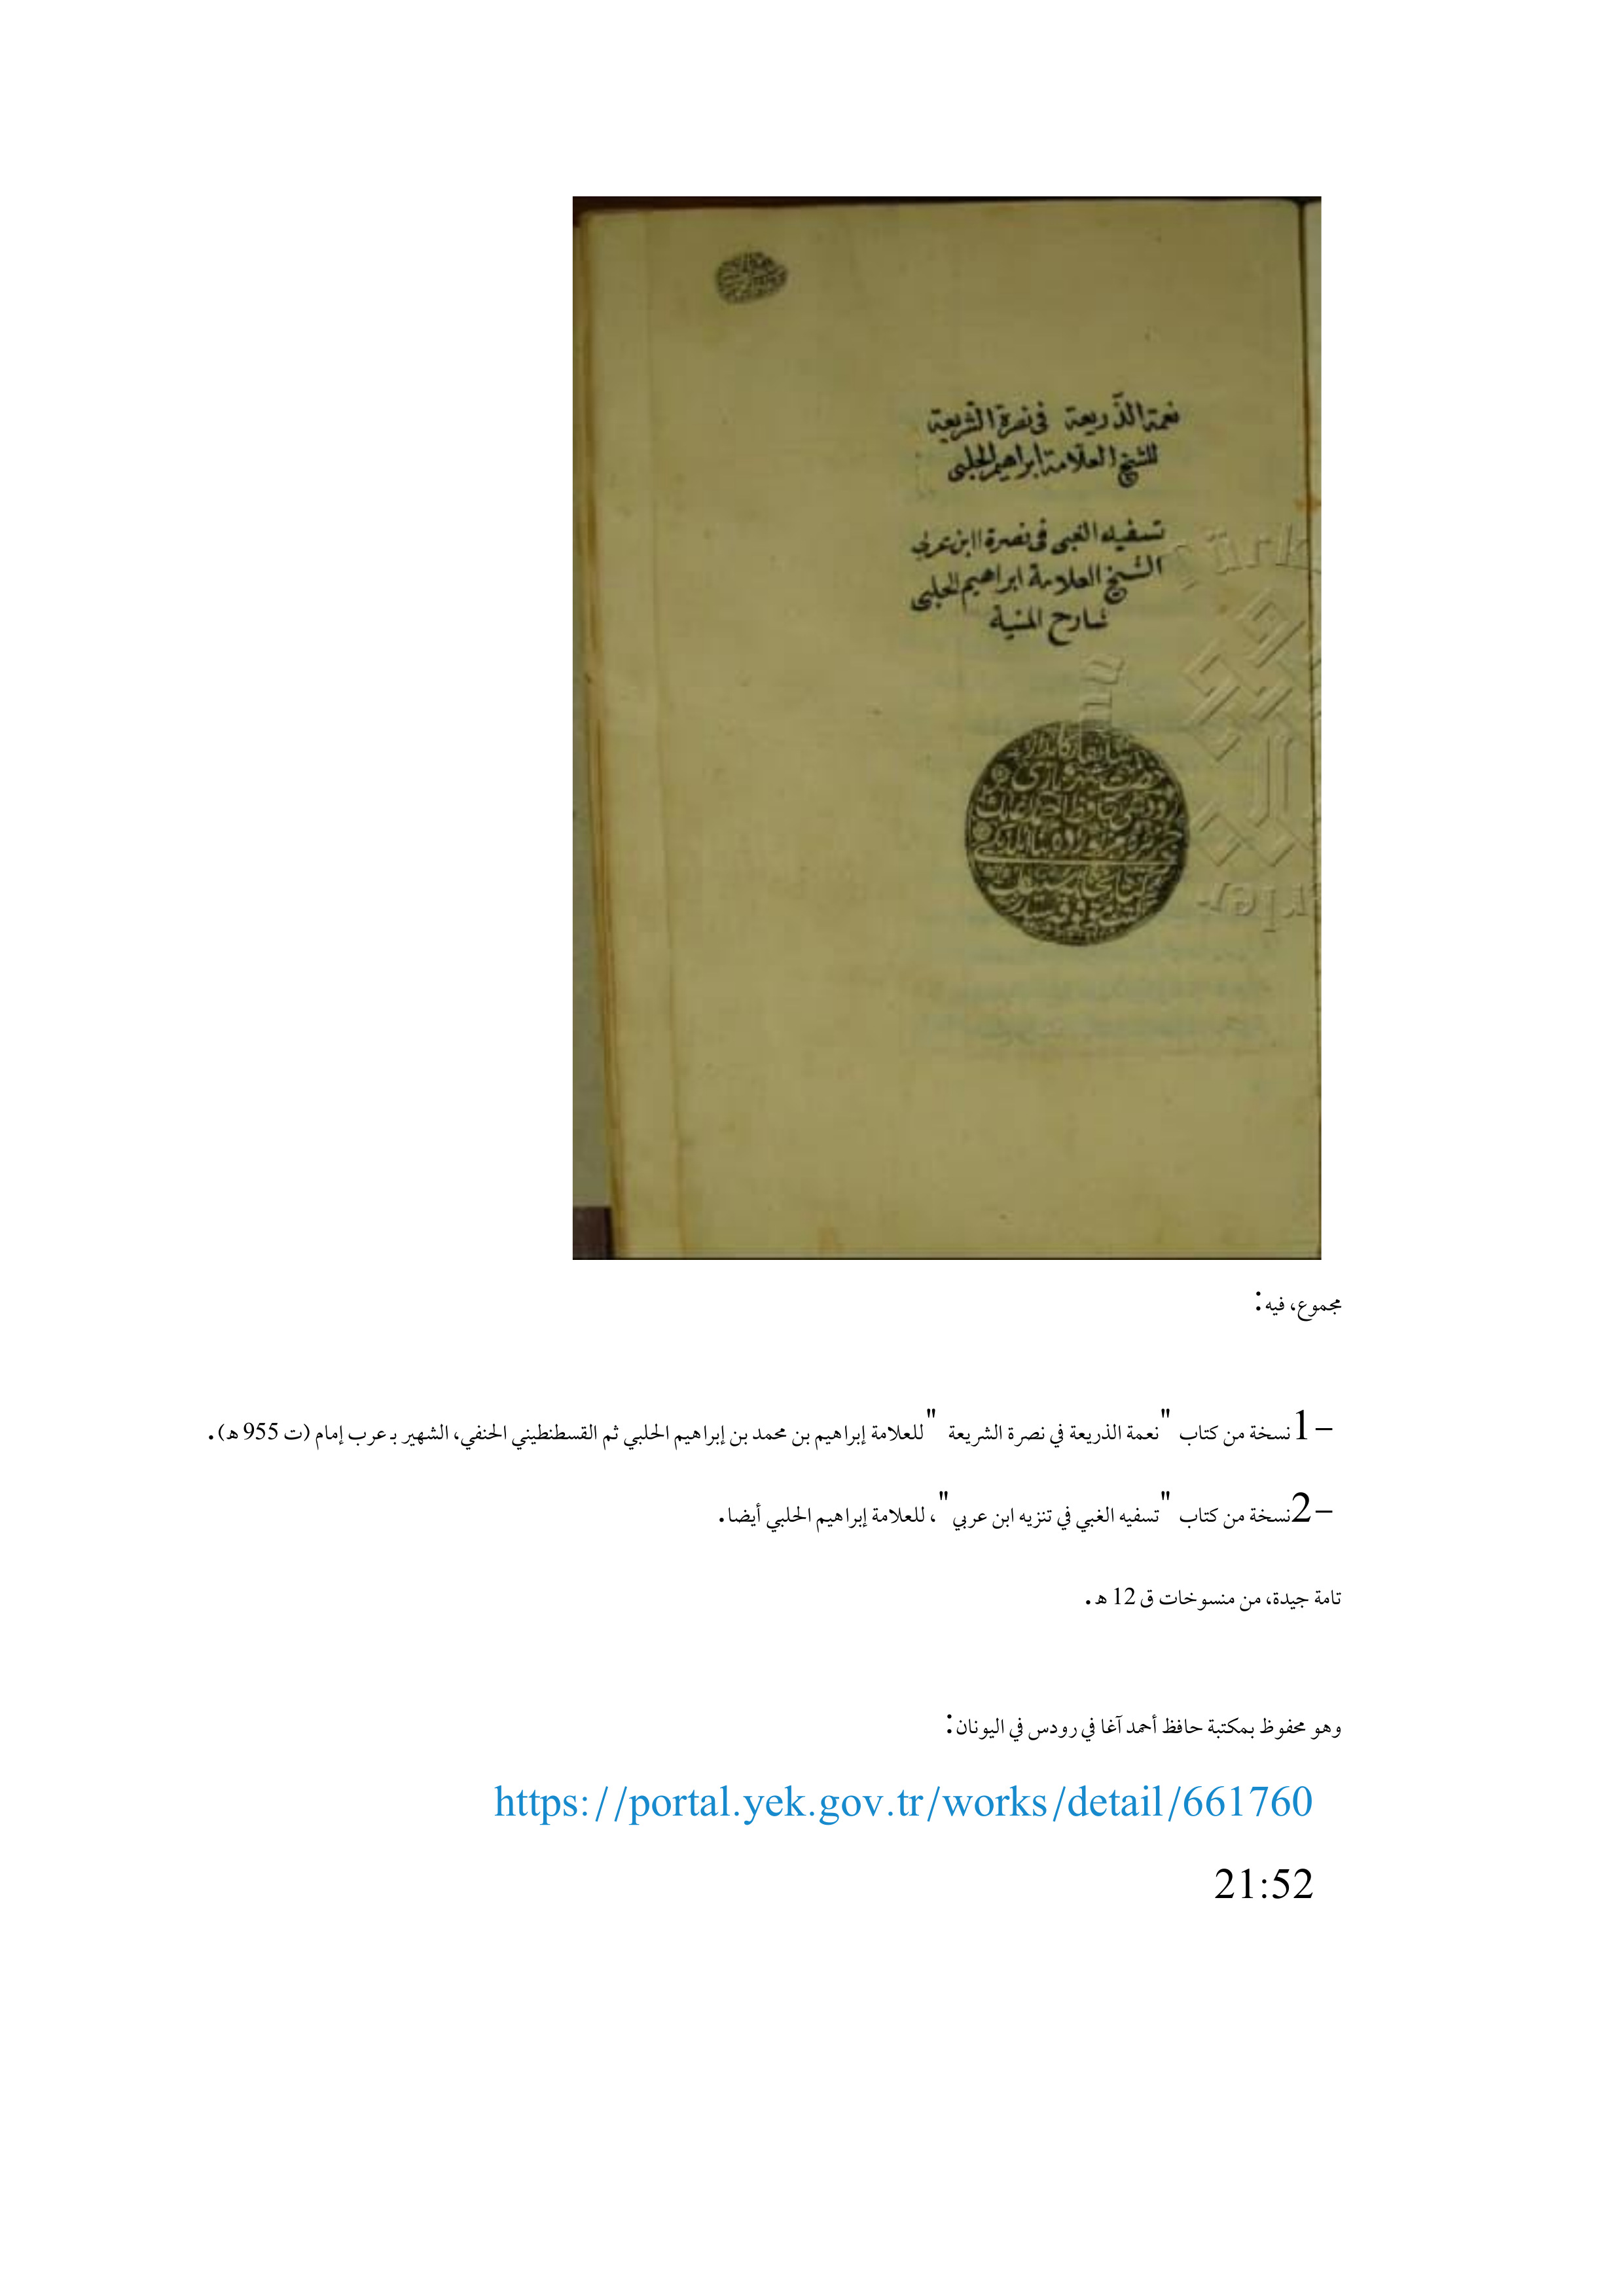 نعمة الذّريعة في نصرة الشّريعة
للشيخ العلّامة ابراهيم الحلبى
تسفيه الغبى فى نصرة ابن عربى
الشيخ العلامة ابراهيم الحلبى
شارح المنية
مجموع، فيه:
1- نسخة من كتاب "نعمة الذريعة في نصرة الشريعة" للعلامة إبراهيم بن محمد بن إبراهيم الحلبي ثم القسطنطيني الحنفي، الشهير بـ عرب إمام (ت 955 هـ).
2- نسخة من كتاب "تسفيه الغبي في تنزيه ابن عربي"، للعلامة إبراهيم الحلبي أيضا.
تامة جيدة، من منسوخات ق 12 هـ.
وهو محفوظ بمكتبة حافظ أحمد آغا في رودس في اليونان:
https://portal.yek.gov.tr/works/detail/661760
21:52